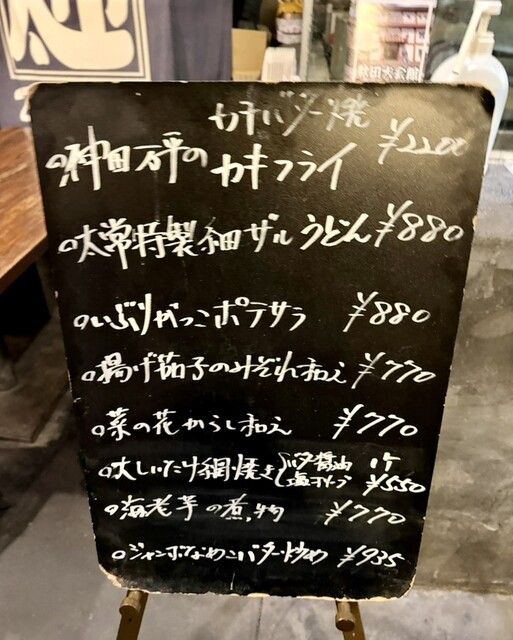 カキバター焼
○神田万平の カキフライ ¥2200
○太常特製細ザルうどん ¥880
○いぶりがっこポテサラ ¥880
○揚げ茄子のみぞれ和え ¥770
○菜の花からし和え ¥770
○大しいたけ網焼き バタ醤油 1ケ
塩オリーブ ¥550
○海老芋の煮物 ¥770
○ジャンボなめこバター炒め ¥935